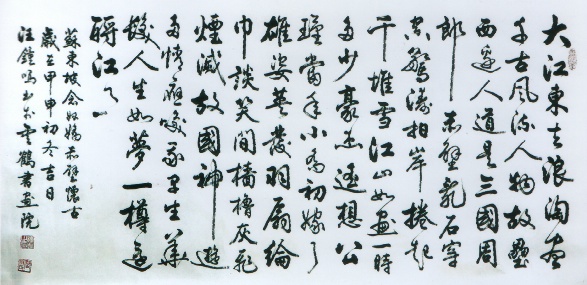 大江東去浪淘盡
千古風流人物故壘
西邊人道是三國周
郎赤壁亂石穿
空驚濤拍岸捲起
千堆雪江山如畫一時
多少豪傑遙想公
瑾當年小喬初嫁了
雄姿英發羽扇綸
巾談笑間檣櫓灰飛
煙滅故國神遊
多情應笑我早生華
髮人生如夢一樽還
酹江月
蘇東坡念奴嬌赤壁懷古
歲在甲申初冬吉日
汪鐘鳴書於雲鶴書畫院